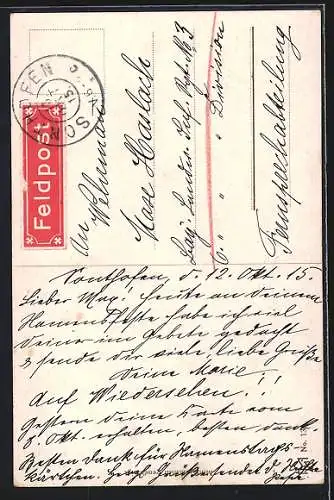 Feldpost
SONTHOFEN
An
Wehrmann
Max Haslach
Bay. Landw. Inf. Rgt. No 3
6. " " Division
Fernsprechabteilung
Sonthofen, d. 12. Okt. 15.
Lieber Max! Heute an Deinem
Namensfeste habe ich viel
Deiner im Gebete gedacht
& sende dir viele, liebe Grüße
Deine Marie
Auf Wiedersehen!!!
Gestern Deine Karte vom
8. Okt. erhalten, besten Dank.
Besten Dank für Namenstags-
kärtchen. Herzl. Grüße sendet d.